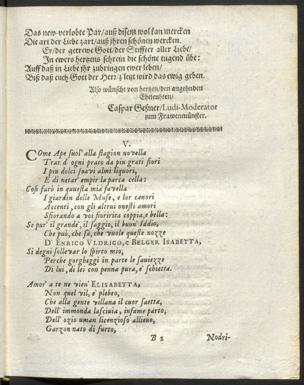 Das new verlobte Par/ auß disem wol kan mercken
Die art der Liebe zart/ auß ihren schönen wercken.
Er/ der getrewe Gott/ der Stiffter aller Liebe/
In ewers hertzens schrein die schöne tugend übe:
Auff daß in Liebe ihr zubringen ewer leben/
Biß daß euch Gott der Herr wird das ewig geben.
Also wünscht von hertzen/ den angehnden
Eheleuthen/
Caspar Geßner/ Ludi-Moderator
zum Frawenmünster.
V.
COme Ape suol' alla stagion novella
Trar d' ogni prato da piu grati fiori
I piu dolci soavi almi liquori,
E di nettar' empir la parca cella:
Cosi farò in questa mia favella
I giardin delle Muse, e lor canori
Accenti, con gli alcrui onesti amori
Sfiorando a voi fioririta coppia, e bella:
Se pur' il grande, il saggio, il buon' Iddio,
Che può, che fà, che vuole queste nozze
D' ENRICO ULDRIGO, e BELGER ISABETTA,
Si degni sollevar lo spirto mio,
Perche gorgheggi in parte le sauiezze
Di lui, di lei con penna pura, e schietta.
Amor' a te ne vien' ELISABETTA,
Non quel vil, e plebeo,
Che alla gente villana il cuor saetta,
Dell' immonda lasciuia, infame parto,
Dell' ozio uman licenzioso allieuo,
Garzon nato di furto,
B 2 Nodri-